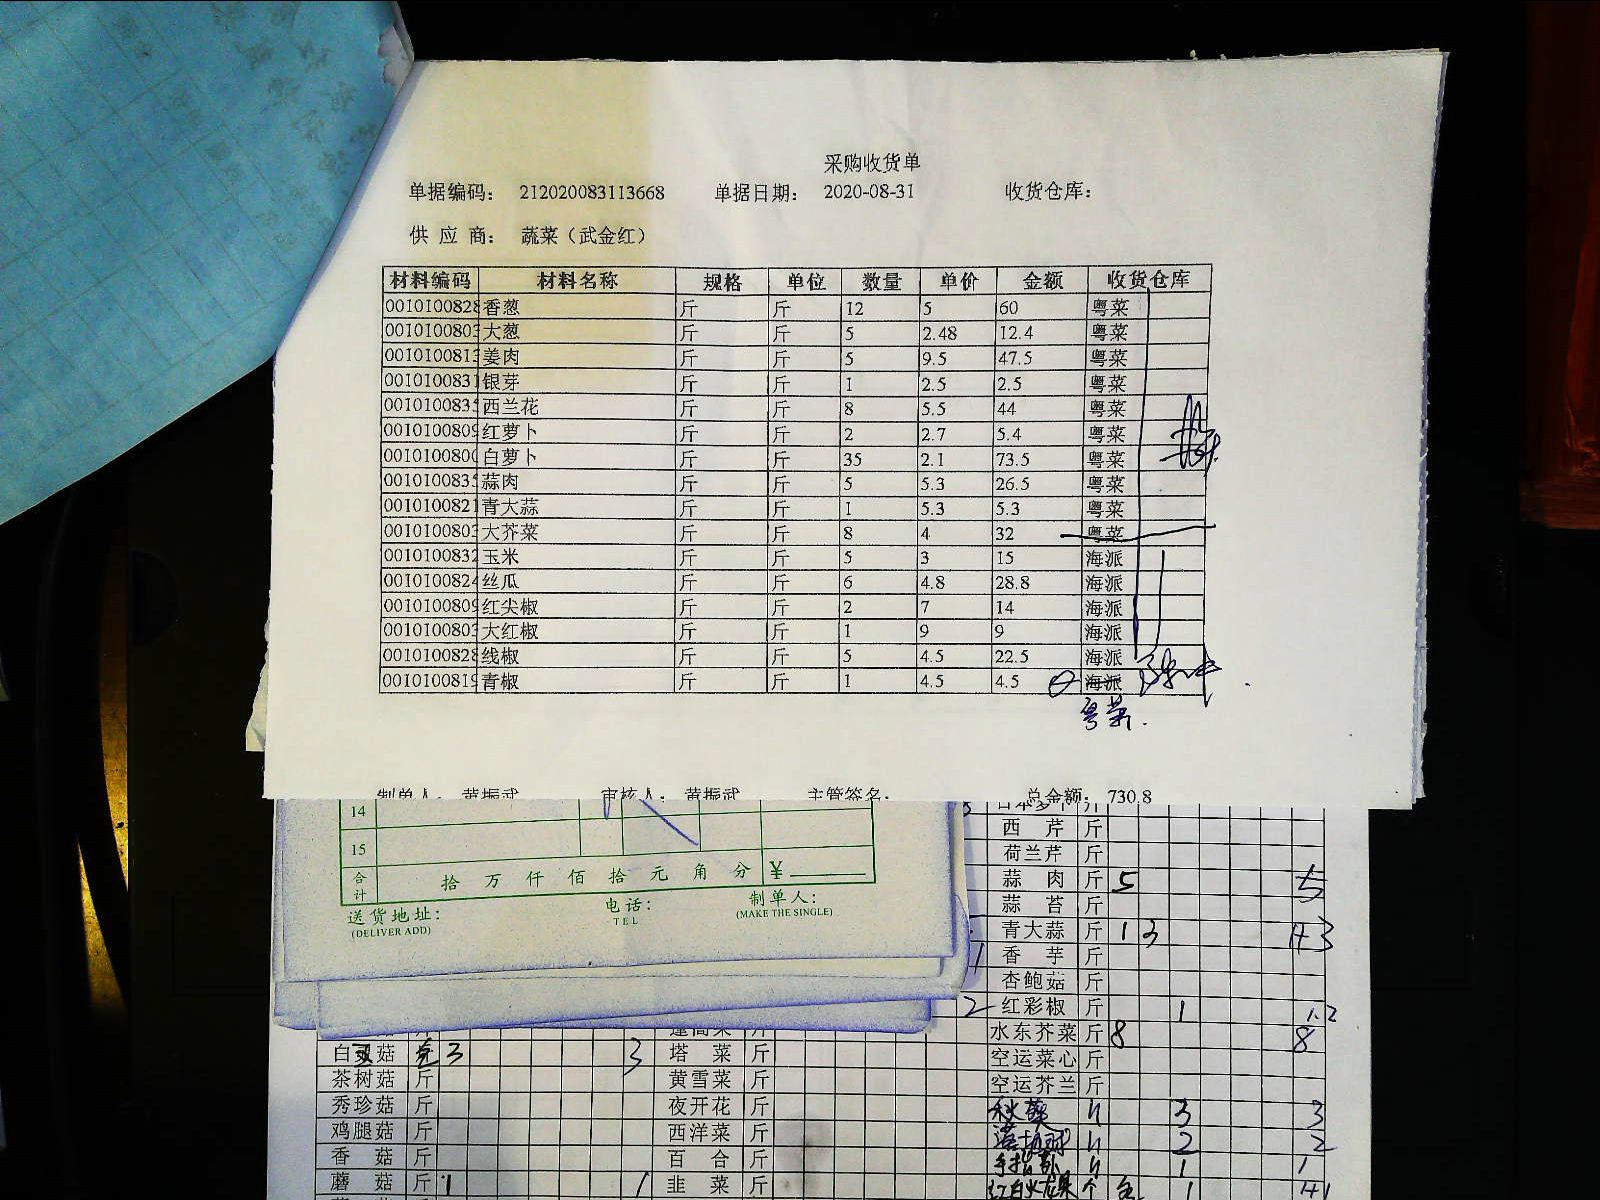 采购收货单
单据编码： 212020083113668 单据日期： 2020-08-31 收货仓库：
供 应 商： 蔬菜（武金红）
材料编码 材料名称 规格 单位 数量 单价 金额 收货仓库
0010100828 香葱 斤 斤 12 5 60 粤菜
001010080 大葱 斤 斤 5 2.48 12.4 粤菜
001010081 姜肉 斤 斤 5 9.5 47.5 粤菜
001010083 银芽 斤 斤 1 2.5 2.5 粤菜
001010083 西兰花 斤 斤 8 5.5 44 粤菜
001010080 红萝卜 斤 斤 2 2.7 5.4 粤菜
001010080 白萝卜 斤 斤 35 2.1 73.5 粤菜
001010083 蒜肉 斤 斤 5 5.3 26.5 粤菜
001010082 青大蒜 斤 斤 1 5.3 5.3 粤菜
001010080 大芥菜 斤 斤 8 4 32 粤菜
001010083 玉米 斤 斤 5 3 15 海派
001010082 丝瓜 斤 斤 6 4.8 28.8 海派
001010080 红尖椒 斤 斤 2 7 14 海派
001010080 大红椒 斤 斤 1 9 9 海派
001010082 线椒 斤 斤 5 4.5 22.5 海派
001010081 青椒 斤 斤 1 4.5 4.5 海派
粤菜.
制单人： 黄振武 审核人： 黄振武 主管签名： 总金额： 730.8
14
15
合计 拾 万 仟 佰 拾 元 角 分 ¥
送货地址： 电话： 制单人：
(DELIVER ADD) TEL (MAKE THE SINGLE)
西 芹 斤
荷兰芹 斤
蒜 肉 斤 5 5
蒜 苔 斤
青大蒜 斤 1 3 1+3
香 芋 斤
杏鲍菇 斤
2 红彩椒 斤 1 1.2
水东芥菜 斤 8 8
白灵菇 3 3 塔 菜 斤 空运菜心 斤
茶树菇 斤 黄雪菜 斤 空运芥兰 斤
秀珍菇 斤 夜开花 斤 秋葵 3 3
鸡腿菇 斤 西洋菜 斤 2 2
香 菇 斤 百 合 斤 1 1
蘑 菇 斤 1 1 韭 菜 斤 红白火龙果 个 1 1+1